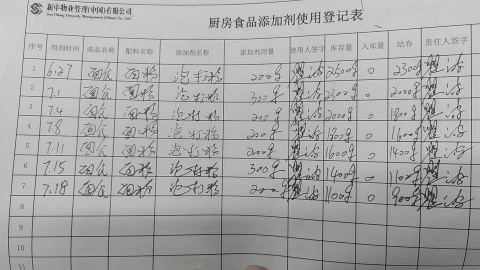 新中物业管理(中国)有限公司
Sun Chung Property Management (China) Co., Ltd
厨房食品添加剂使用登记表
序号 用剂时间 成品名称 配料名称 添加剂名称 添加剂用量 使用人签字 库存量 入库量 结存 责任人签字
1 6.27 面食 面粉 泡打粉 200g 2500g 0 2300g
2 7.1 面食 面粉 泡打粉 300g 2300g 0 2000g
3 7.4 面食 面粉 泡打粉 200g 2000g 0 1800g
4 7.8 面食 面粉 泡打粉 200g 1800g 0 1600g
5 7.11 面食 面粉 泡打粉 200g 1600g 0 1400g
6 7.15 面食 面粉 泡打粉 300g 1400g 0 1100g
7 7.18 面食 面粉 泡打粉 200g 1100g 0 900g
8
9
10
11